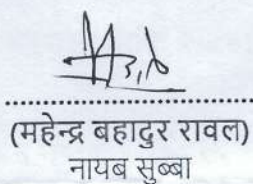 (महेन्द्र बहादुर रावल)
नायब सुब्बा